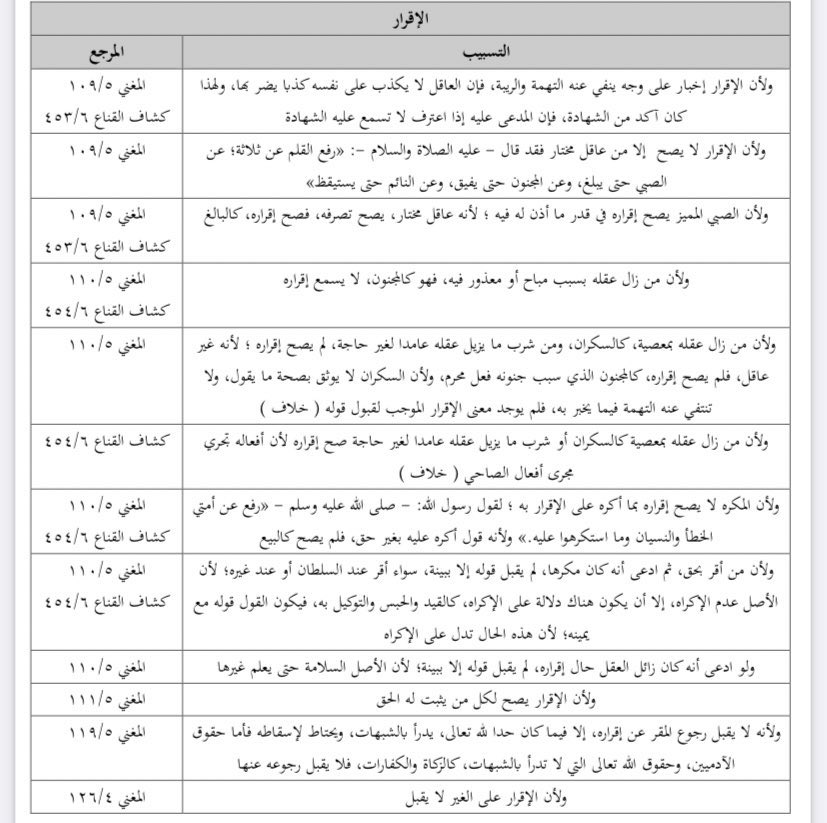 الإقرار
التسبيب
المرجع
ولأن الإقرار إخبار على وجه ينفي عنه التهمة والريبة، فإن العاقل لا يكذب على نفسه كذبا يضر بها، ولهذا
كان آكد من الشهادة، فإن المدعى عليه إذا اعترف لا تسمع عليه الشهادة
المغني ١٠٩/٥
كشاف القناع ٤٥٣/٦
ولأن الإقرار لا يصح إلا من عاقل مختار فقد قال – عليه الصلاة والسلام –: «رفع القلم عن ثلاثة؛ عن
الصبي حتى يبلغ، وعن المجنون حتى يفيق، وعن النائم حتى يستيقظ»
المغني ١٠٩/٥
ولأن الصبي المميز يصح إقراره في قدر ما أذن له فيه ؛ لأنه عاقل مختار، يصح تصرفه، فصح إقراره، كالبالغ
المغني ١٠٩/٥
كشاف القناع ٤٥٣/٦
ولأن من زال عقله بسبب مباح أو معذور فيه، فهو كالمجنون، لا يسمع إقراره
المغني ١١٠/٥
كشاف القناع ٤٥٤/٦
ولأن من زال عقله بمعصية، كالسكران، ومن شرب ما يزيل عقله عامدا لغير حاجة، لم يصح إقراره ؛ لأنه غير
عاقل، فلم يصح إقراره، كالمجنون الذي سبب جنونه فعل محرم، ولأن السكران لا يوثق بصحة ما يقول، ولا
تنتفي عنه التهمة فيما يخبر به، فلم يوجد معنى الإقرار الموجب لقبول قوله ( خلاف )
المغني ١١٠/٥
ولأن من زال عقله بمعصية كالسكران أو شرب ما يزيل عقله عامدا لغير حاجة صح إقراره لأن أفعاله تجري
مجرى أفعال الصاحي ( خلاف )
كشاف القناع ٤٥٤/٦
ولأن المكره لا يصح إقراره بما أكره على الإقرار به ؛ لقول رسول الله: – صلى الله عليه وسلم – «رفع عن أمتي
الخطأ والنسيان وما استكرهوا عليه.» ولأنه قول أكره عليه بغير حق، فلم يصح كالبيع
المغني ١١٠/٥
كشاف القناع ٤٥٤/٦
ولأن من أقر بحق، ثم ادعى أنه كان مكرها، لم يقبل قوله إلا ببينة، سواء أقر عند السلطان أو عند غيره؛ لأن
الأصل عدم الإكراه، إلا أن يكون هناك دلالة على الإكراه، كالقيد والحبس والتوكيل به، فيكون القول قوله مع
يمينه؛ لأن هذه الحال تدل على الإكراه
المغني ١١٠/٥
كشاف القناع ٤٥٤/٦
ولو ادعى أنه كان زائل العقل حال إقراره، لم يقبل قوله إلا ببينة؛ لأن الأصل السلامة حتى يعلم غيرها
المغني ١١٠/٥
ولأن الإقرار يصح لكل من يثبت له الحق
المغني ١١١/٥
ولأنه لا يقبل رجوع المقر عن إقراره، إلا فيما كان حدا لله تعالى، يدرأ بالشبهات، ويحتاط لإسقاطه فأما حقوق
الآدميين، وحقوق الله تعالى التي لا تدرأ بالشبهات، كالزكاة والكفارات، فلا يقبل رجوعه عنها
المغني ١١٩/٥
ولأن الإقرار على الغير لا يقبل
المغني ١٢٦/٤